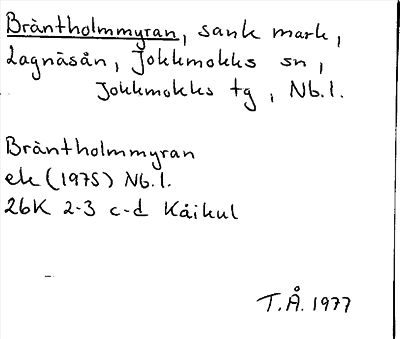 Bräntholmmyran, sank mark,
Lagnäsån, Jokkmokks sn,
Jokkmokks tg, Nb.l.
Bräntholmmyran
ek (1975) Nb.l.
26K 2-3 c-d Kåikul
T.Å. 1977